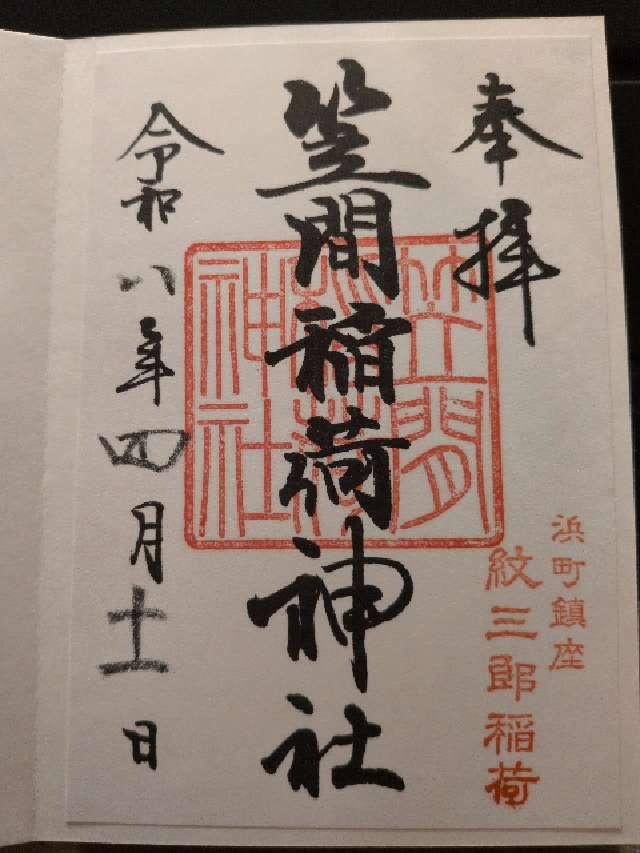 奉拝
浜町鎮座
紋三郎稲荷
笠間稲荷神社
笠間
稲荷
神社
令和八年四月十一日